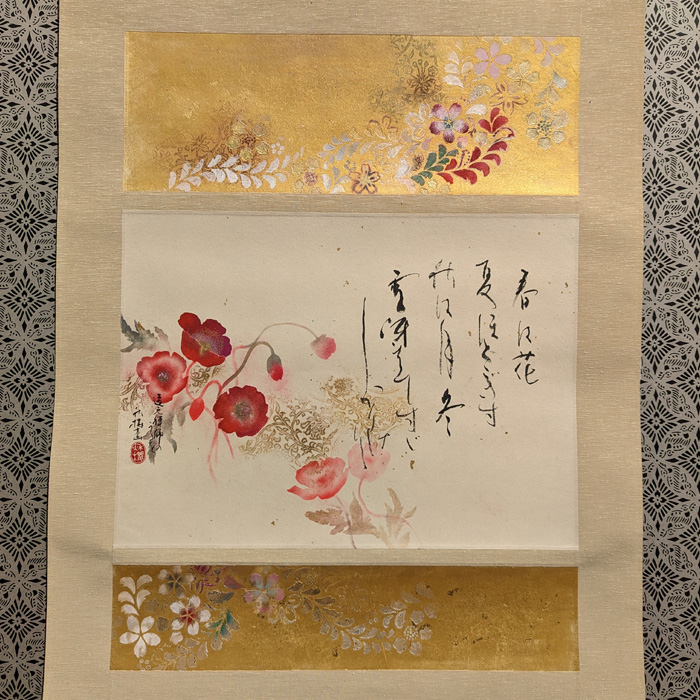 春は花
夏ほとぎす
秋は月 冬
雪冴え すゞ
しかりけ
道元禅師